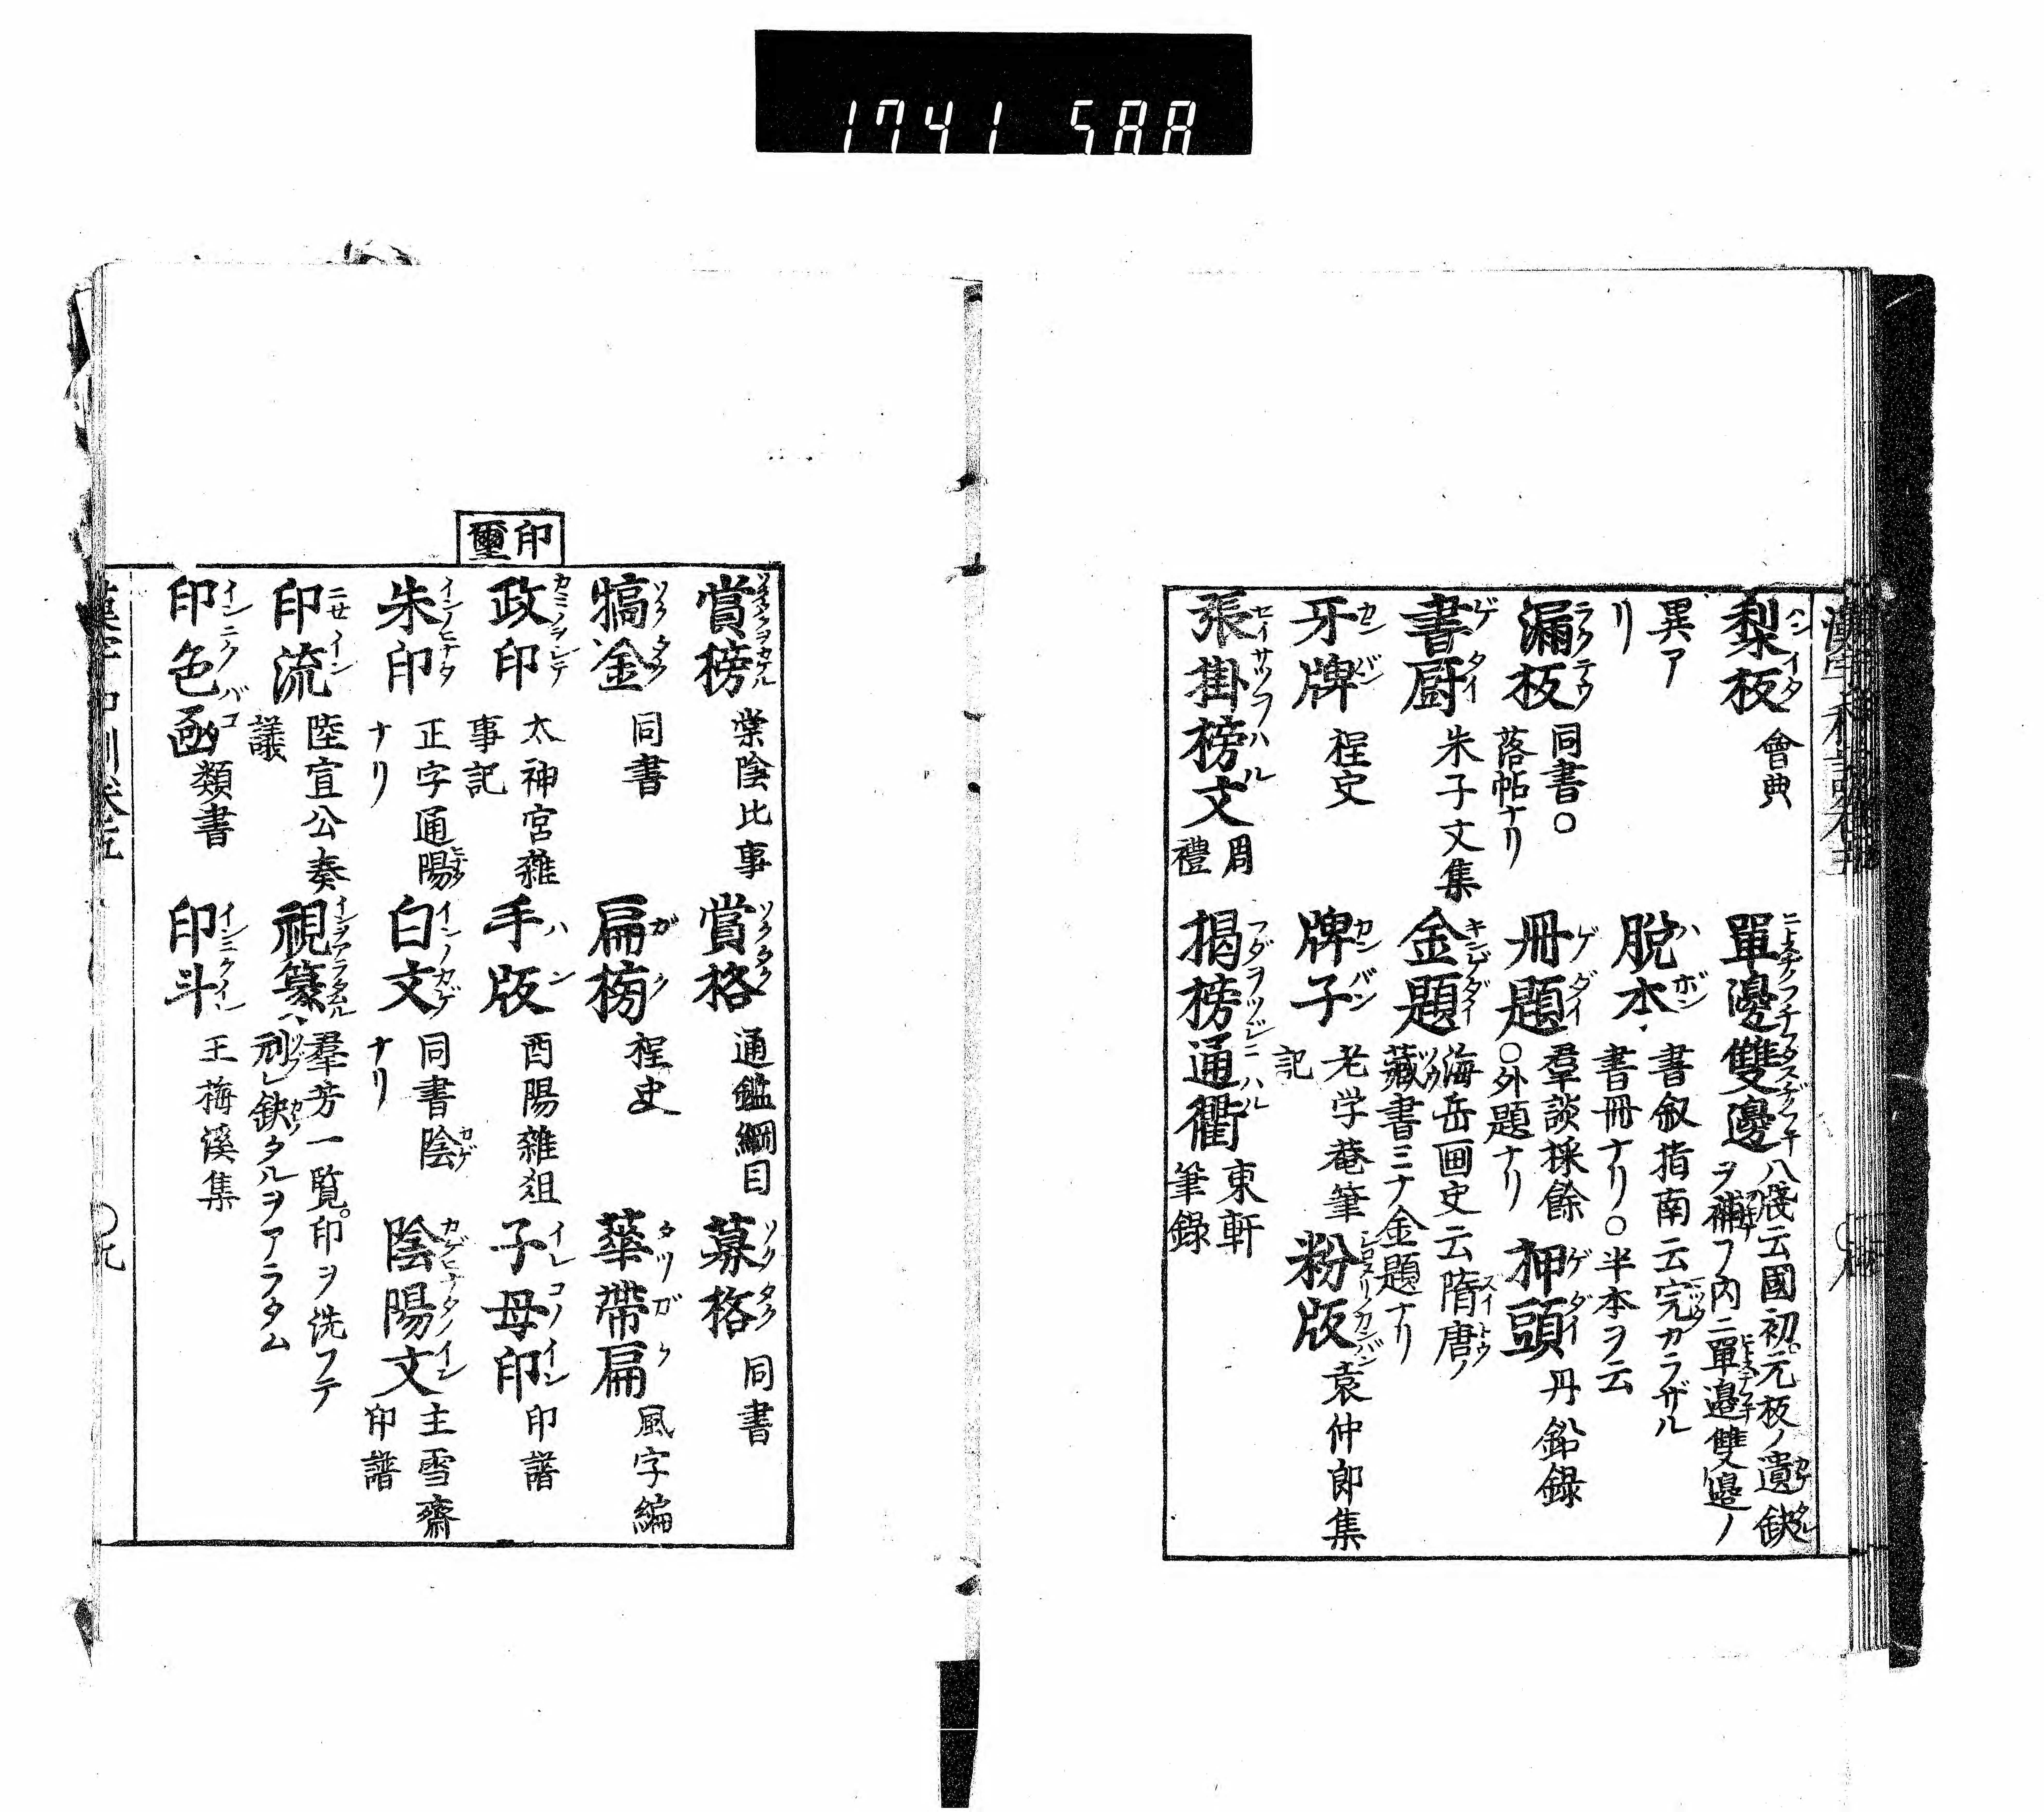 1741 588
梨板 會典
單邊雙邊 八牋云國初元板ノ遺缺
ヲ補フ内ニ單邊雙邊ノ
異ア
リ
脱本 書叙指南云完カラザル
書冊ナリ〇半本ヲ云
漏板 同書〇
落帖ナリ
冊題 羣談採餘
〇外題ナリ
押頭 丹鉛録
書厨 朱子文集
金題 海岳画史云隋唐ノ
藏書ミナ金題ナリ
牙牌 桯史
牌子 老学菴筆
記
粉版 袁仲郎集
張掛榜文 周
禮
揭榜通衢 東軒
筆錄
賞榜 棠陰比事
賞格 通鑑綱目
募格 同書
犒金 同書
扁榜 桯史
華帶扁 風字編
印
璽
政印 太神宮雜
事記
手版 酉陽雜俎
子母印 印譜
朱印 正字通陽
ナリ
白文 同書陰
ナリ
陰陽文 主雪齋
印譜
印流 陸宣公奏
議
視篆 羣芳一覧。印ヲ洗フテ
刓レ缺タルヲアラタム
印色凾 類書
印斗 王梅溪集